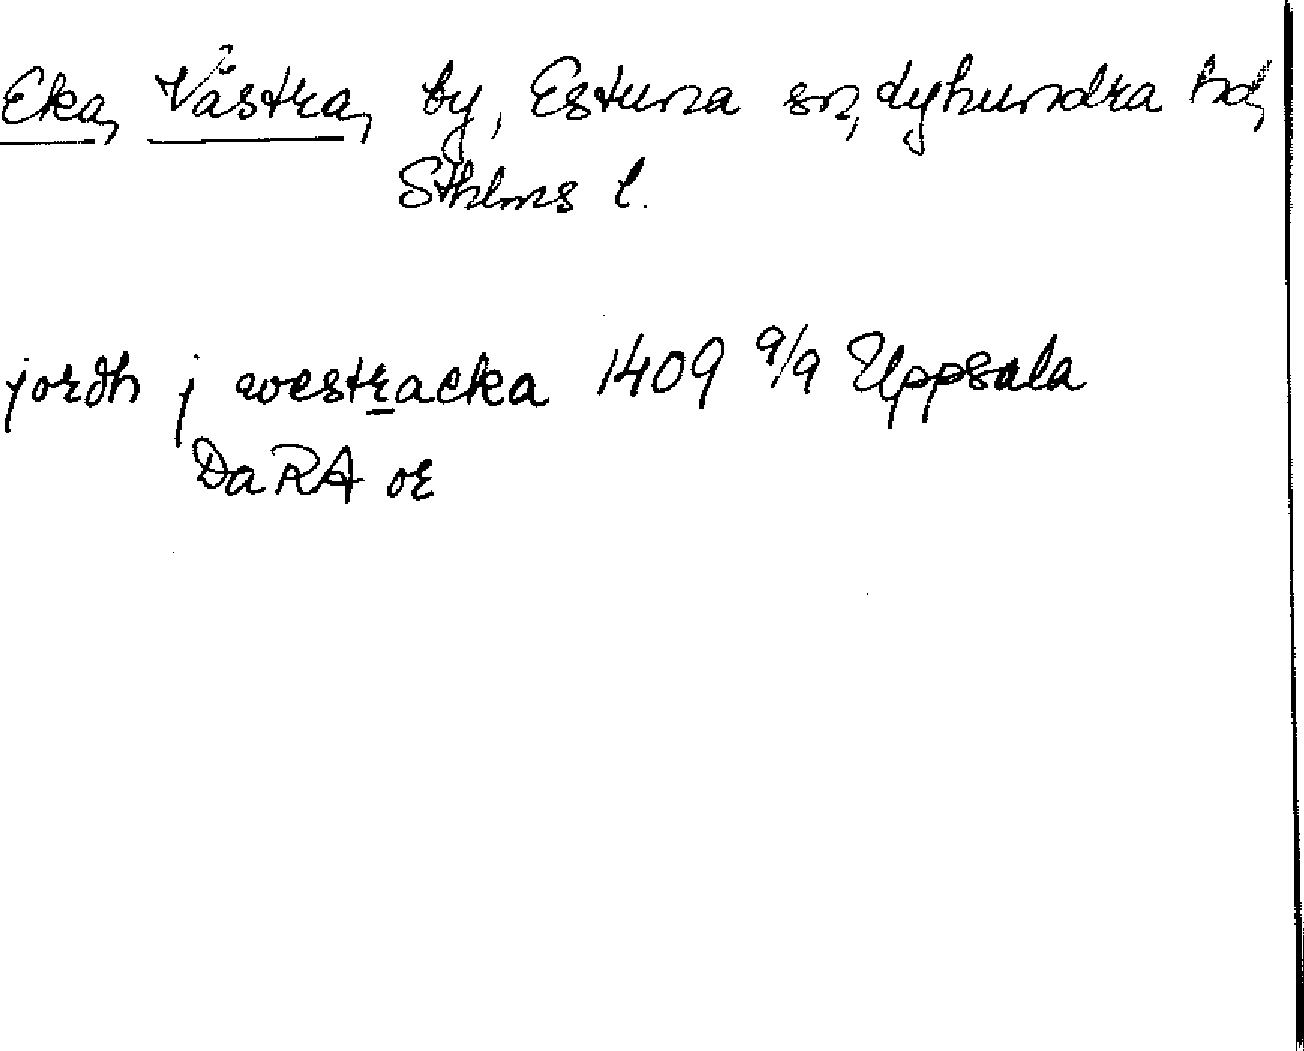 Eka, Västra, by, Estuna sn, Lyhundra hd,
Sthlms l.
jordh j westracka 1409 9/9 Uppsala
DaRA or